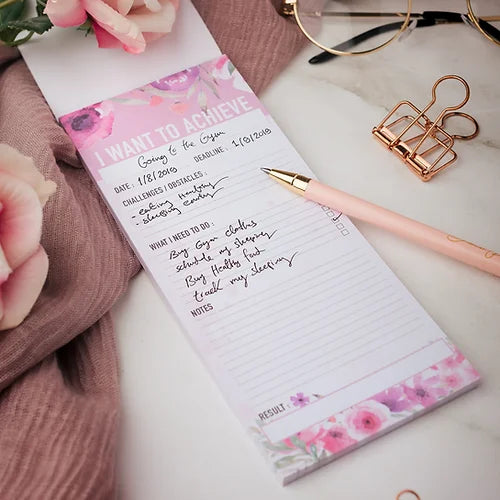 I WANT TO ACHIEVE
Going to the Gym
DATE : 1/8/2019 DEADLINE : 1/9/2019
CHALLENGES / OBSTACLES :
- eating
- sleeping
WHAT I NEED TO DO :
Buy Gym clothes
schedule my sleeping
Buy Healthy food
track my sleeping
NOTES
RESULT :